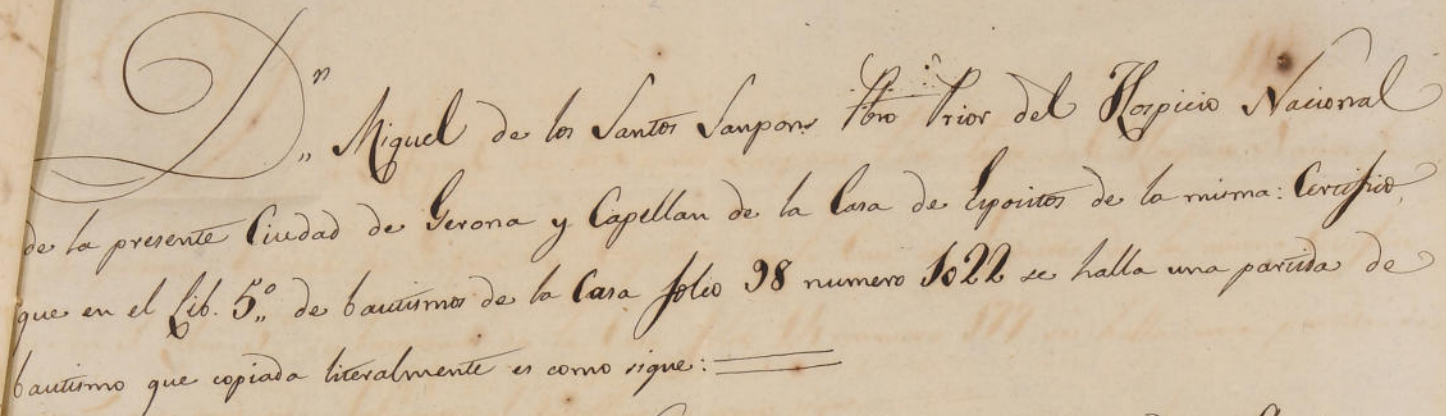 Dn Miguel de los Santos Sanpons Pbro Prior del Hospicio Nacional
de la presente Ciudad de Gerona y Capellan de la Casa de Espositos de la misma: Certifico,
que en el Lib. 5o de bautismos de la Casa folio 98 numero 1022 se halla una partida de
bautismo que copiada literalmente es como sigue: